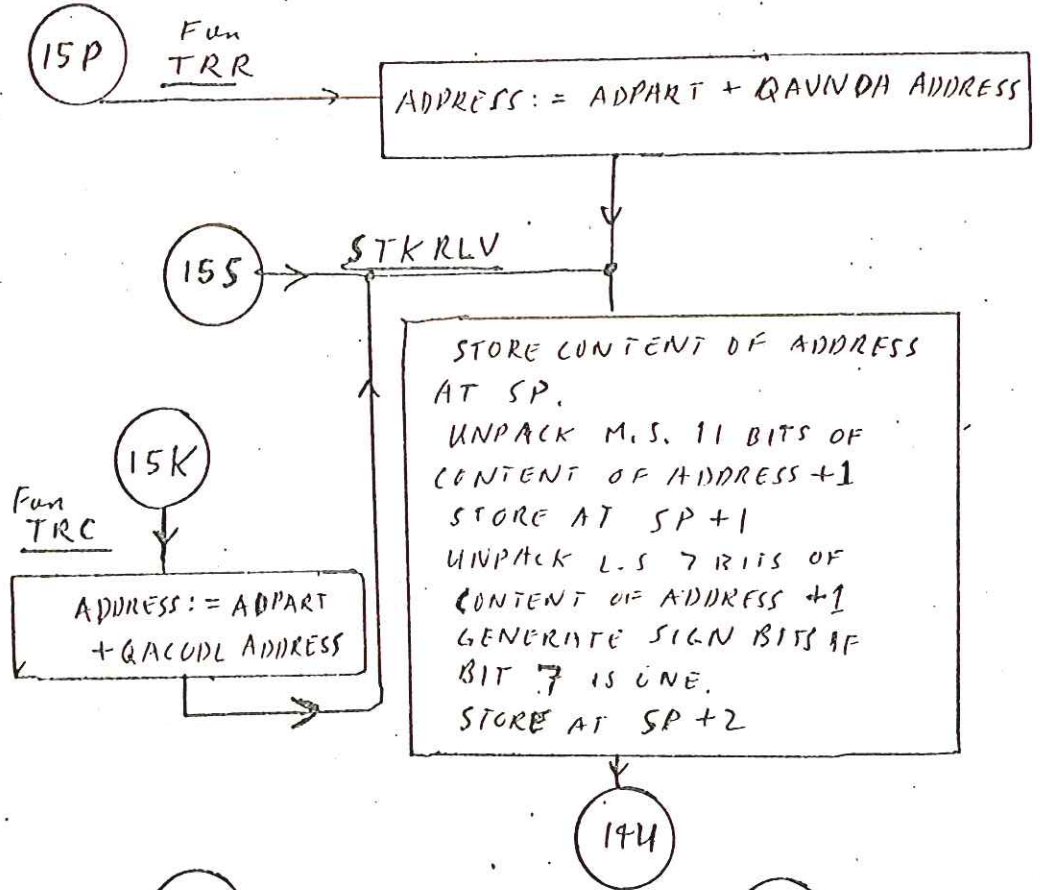 15P
Fun
TRR
ADDRESS := ADPART + QAVNDA ADDRESS
15S
STKRLV
STORE CONTENT OF ADDRESS
AT SP.
UNPACK M.S. 11 BITS OF
CONTENT OF ADDRESS +1
STORE AT SP +1
UNPACK L.S 7 BITS OF
CONTENT OF ADDRESS +1
GENERATE SIGN BITS IF
BIT 7 IS ONE.
STORE AT SP +2
15K
Fun
TRC
ADDRESS := ADPART
+ QACODL ADDRESS
14U